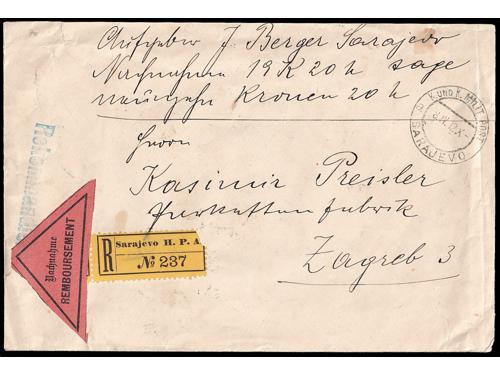 Aufgeber J. Berger Sarajevo
Nachnahme 19 K 20 h sage
neunzehn Kronen 20 h
K. UND K. MILIT. POST
SARAJEVO
Herrn
Kasimir Preisler
Parketten Fabrik
Zagreb 3
Nachnahme
REMBOURSEMENT
R
Sarajevo H. P. A
№ 237